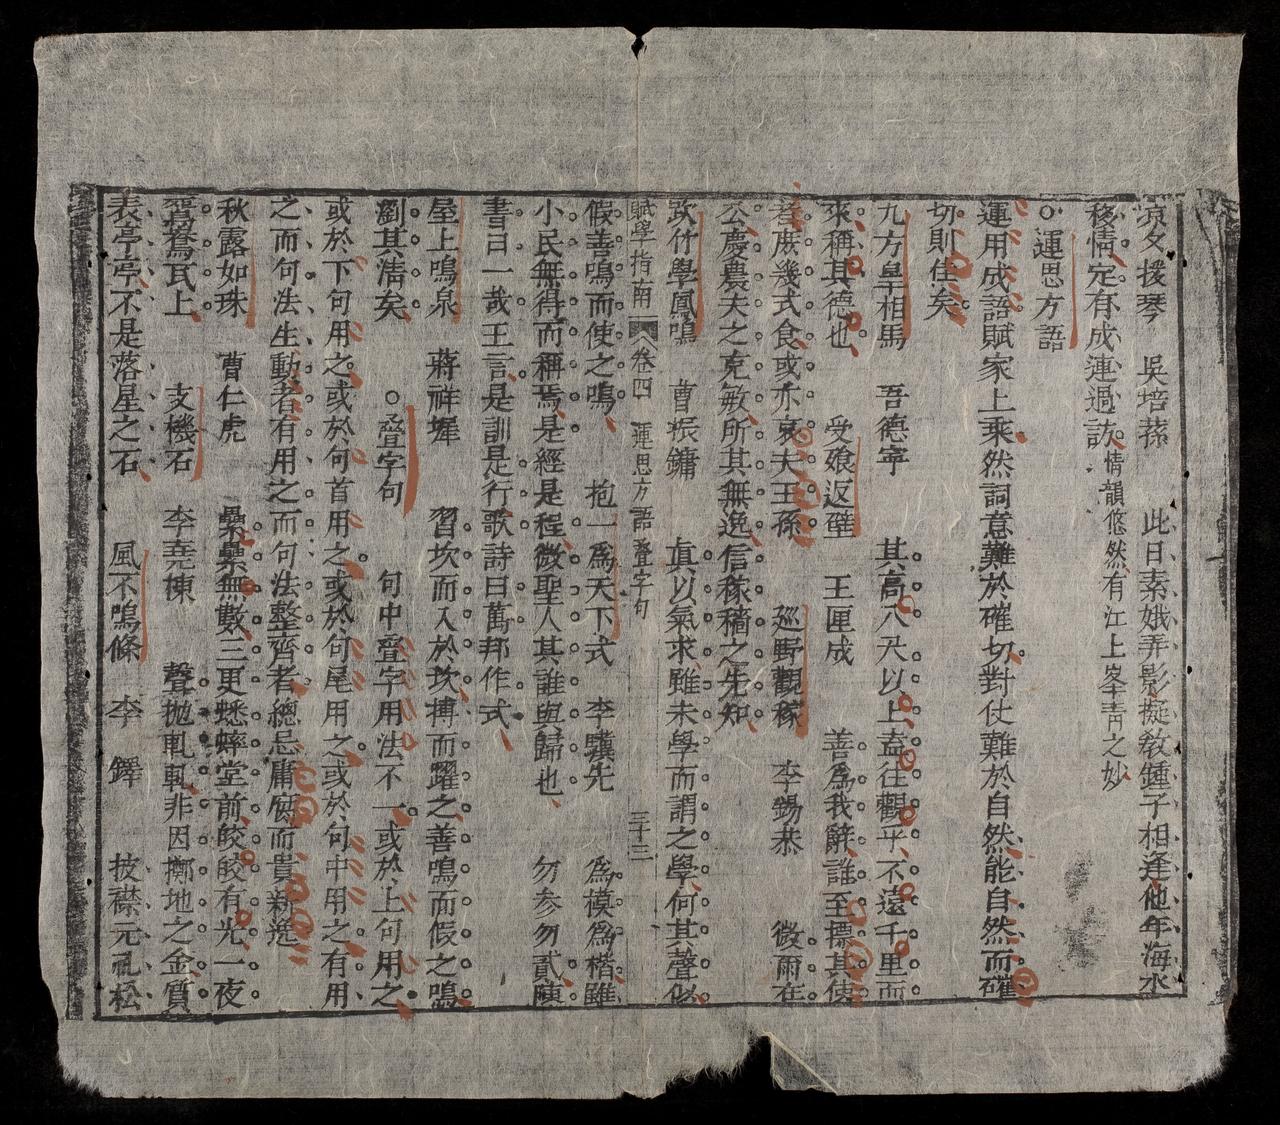 夕援琴 吳培蓀 此日素娥弄影擬敎鍾子相逢他年海水
移情定有成連過訪情韻悠然有江上峯靑之妙
○運思方語
運用成語賦家上乘然詞意難於確切對仗難於自然能自然而確
切則佳矣
九方皐相馬 吾德寧 其高八尺以上盍往觀乎不遠千里而
來稱其德也 受飧返璧 王匣成 善爲我辭誰至標其使
者庶幾式食或亦哀夫王孫 巡野觀稼 李錫恭 微雨在
公慶農夫之克敏所其無逸信稼穡之先知
吹竹學鳳鳴 曹振鏞 眞以氣求雖未學而謂之學何其聲似
賦學指南 卷四 運思方語 疊字句 三十三
假善鳴而使之鳴 抱一爲天下式 李驥先 爲模爲楷雖
小民無得而稱焉是經是程微聖人其誰與歸也 勿參勿貳陳
書曰一哉王言是訓是行歌詩曰萬邦作式
屋上鳴泉 蔣祥墀 習坎而入於坎搏而躍之善鳴而假之鳴
瀏其淸矣 ○疊字句 句中疊字用法不一或於上句用之
或於下句用之或於句首用之或於句尾用之或於句中用之有用
之而句法生動者有用之而句法整齊者總忌庸腐而貴新逸
秋露如珠 曹仁虎 纍纍無數三更蟋蟀堂前皎皎有光一夜
鴛鴦瓦上 支機石 李堯棟 聲拋軋軋非因擲地之金質
表亭亭不是落星之石 風不鳴條 李鐸 披襟元禮松